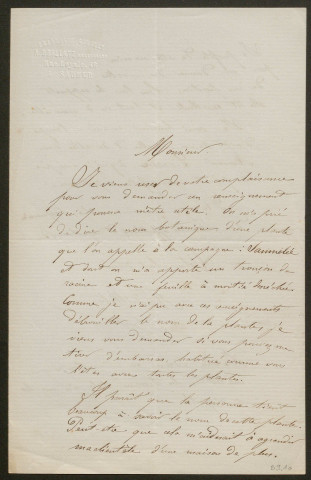 Monsieur.
Je viens user de votre complaisance
pour vous demander un renseignement
qui pourra m'être utile. On me prie
de dire le nom botanique d'une plante
que l'on appelle à la campagne :
et dont on m'a apporté un tronçon de
racine et une feuille à moitié desséchée.
Comme je n'ai pu avec ces renseignements
débrouiller le nom de la plante, je
viens vous demander si vous pourrez me
tirer d'embarras, habitué comme vous
l'êtes avec toutes les plantes.
Il paraît que la personne tient
beaucoup à savoir le nom de cette plante.
Peut être que cela m'aiderait à agrandir
ma clientèle d'une maison de plus.